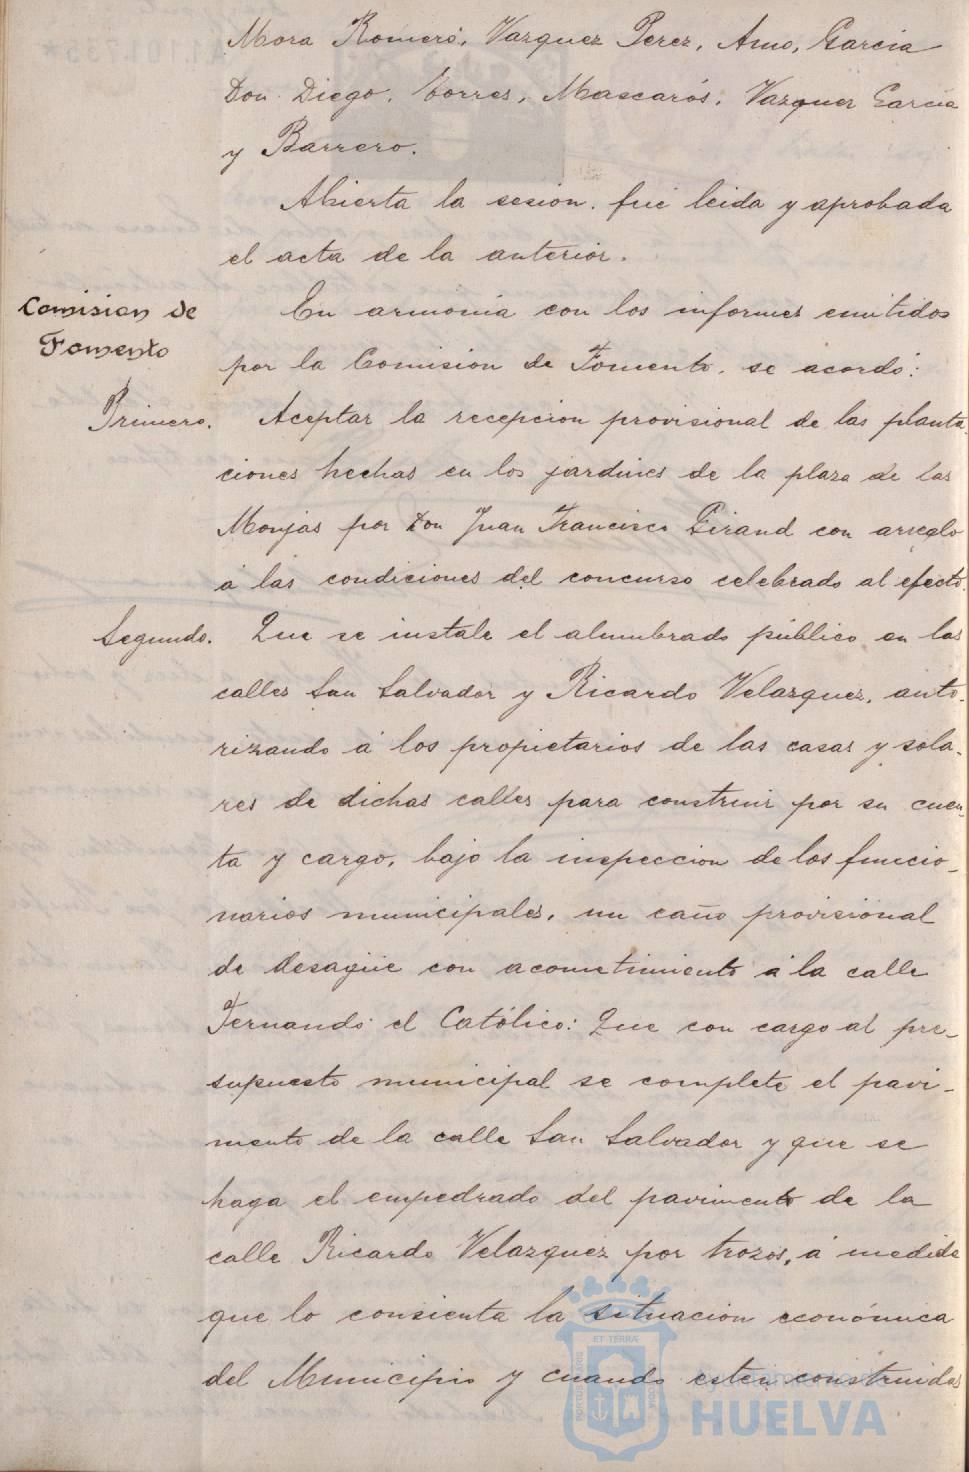 Mora Romero, Vazquez Perez, Amo, Garcia
Don Diego, Torres, Mascarós, Vazquez Garcia
y Barrero.
Abierta la sesion, fué leida y aprobada
el acta de la anterior.
Comision de
Fomento
En armonia con los informes emitidos
por la Comision de Fomento, se acordó:
Primero. Aceptar la recepcion provisional de las planta-
ciones hechas en los jardines de la plaza de las
Monjas por Don Juan Francisco Girand con arreglo
á las condiciones del concurso celebrado al efecto.
Segundo. Que se instale el alumbrado público en las
calles San Salvador y Ricardo Velazquez, auto-
rizando á los propietarios de las casas y sola-
res de dichas calles para construir por su cuen-
ta y cargo, bajo la inspeccion de los funcio-
narios municipales, un caño provisional
de desagüe con acometimiento á la calle
Fernando el Católico: Que con cargo al pre-
supuesto municipal se complete el pavi-
mento de la calle San Salvador y que se
haga el empedrado del pavimento de la
calle Ricardo Velazquez por trozos, á medida
que lo consienta la situacion económica
del Municipio y cuando esten construidos
PORTUS MARIS
ET TERRÆ
CUSTODIA
Ayuntamiento de
HUELVA